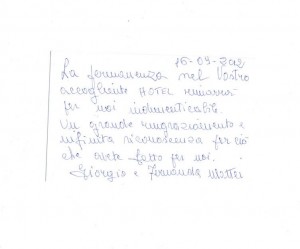 16-09-2012
La permanenza nel Vostro
accogliente HOTEL rimarrà
per noi indimenticabile.
Un grande ringraziamento e
infinita riconoscenza per ciò
che avete fatto per noi.
Giorgio e Fernanda